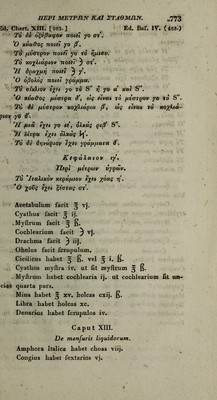 ΠΕΡΙ ΜΕΤΡΩΝ ΚΑΙ ΣΤΑΘΜΩΝ. 773
Ed. Chart. XIII. Ed. Baf. IV.
Τὸ δὲ ὀξύβαφον ποιεῖ γο στ'.
Ὁ κύαθος ποιεῖ γο β'.
Τὸ μύστρον ποιεῖ γο τὸ ἥμισυ.
Τὸ κοχλιάριον ποιεῖ στ'.
Ἡ δραχμὴ ποιεῖ γ'.
Ὁ ὀβολὸς ποιεῖ γράμμα.
Ὁ κύαθος μύστρα δ', ὡς εἶναι τὸ μύστρον γο
Τὸ δὲ μύστρον κοχλιάρια β', ὡς εἶναι τὸ κοχλιά-
ριον γο
Ἡ μνᾶ ἔχει γο ιε', ὁλκὰς
Ἡ λίτρα ἔχει ὁλκὰς
Τὸ δὲ δηνάριον ἔχει γράμματα δ'.
Κεφάλαιον ιγ'.
Περὶ μέτρων ὑγρῶν.
Τὸ Ἰταλικὸν κεράμιον ἔχει χόας η'.
Ὁ χοῦς ἔχει ξέστας στ'.
Acetabulum facit ℥ vj.
Cyathus facit ℥ ij.
Myſtrum facit ℥ ß.
Cochlearium facit ʒ vj.
Drachma facit ℈ iij.
Obolos facit ſcrupulum.
Cicilicus habet ℥ ß. vel ℥ i. ß.
Cyathus myſtra iv. ut ſit myſtrum ℥ ß.
Myſtrum habet cochlearia ij. ut cochlearium ſit un-
ciae quarta pars.
Mina habet ℥ xv. holcas cxij. ß.
Libra habet holcas xc.
Denarius habet ſcrupulos iv.
Caput XIII.
De menſuris liquidorum.
Amphora Italica habet choas viij.
Congius habet ſextarios vj.